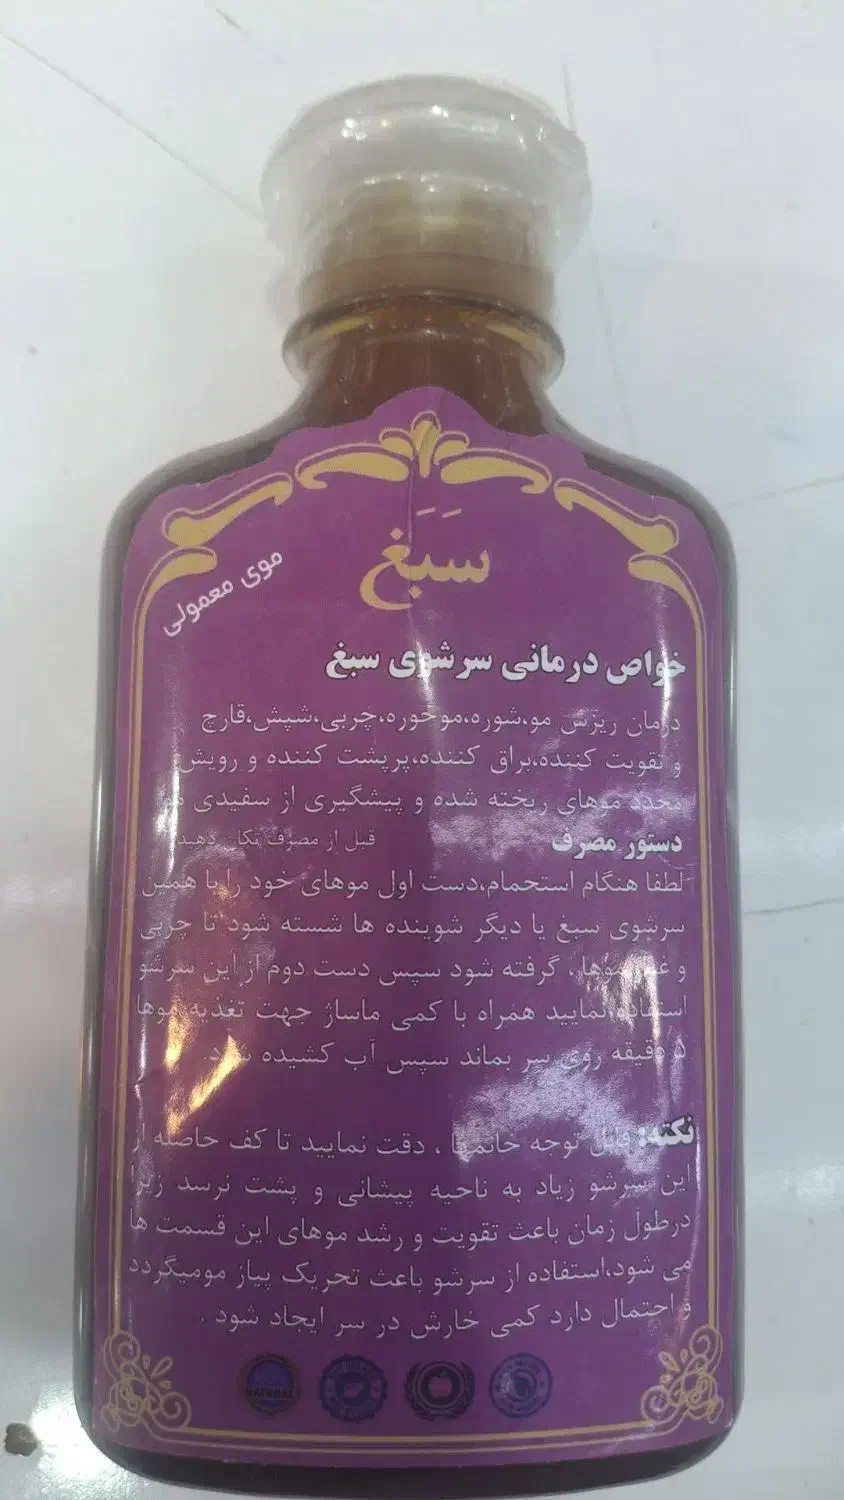 سَبَغ
موی معمولی
خواص درمانی سرشوی سبغ
درمان ریزش مو،شوره،موخوره،چربی،شپش،قارچ
و تقویت کننده،براق کننده،پرپشت کننده و رویش
مجدد موهای ریخته شده و پیشگیری از سفیدی مو
دستور مصرف
قبل از مصرف تکان دهید
لطفا هنگام استحمام،دست اول موهای خود را با همین
سرشوی سبغ یا دیگر شوینده ها شسته شود تا چربی
و موها، گرفته شود سپس دست دوم از این سرشو
استفاده نمایید همراه با کمی ماساژ جهت تغذیه موها
۵ دقیقه روی سر بماند سپس آب کشیده شود.
نکته: قابل توجه خانمها ، دقت نمایید تا کف حاصله از
این سرشو زیاد به ناحیه پیشانی و پشت نرسد زیرا
درطول زمان باعث تقویت و رشد موهای این قسمت ها
می شود،استفاده از سرشو باعث تحریک پیاز مومیگردد
و احتمال دارد کمی خارش در سر ایجاد شود .
NATURAL